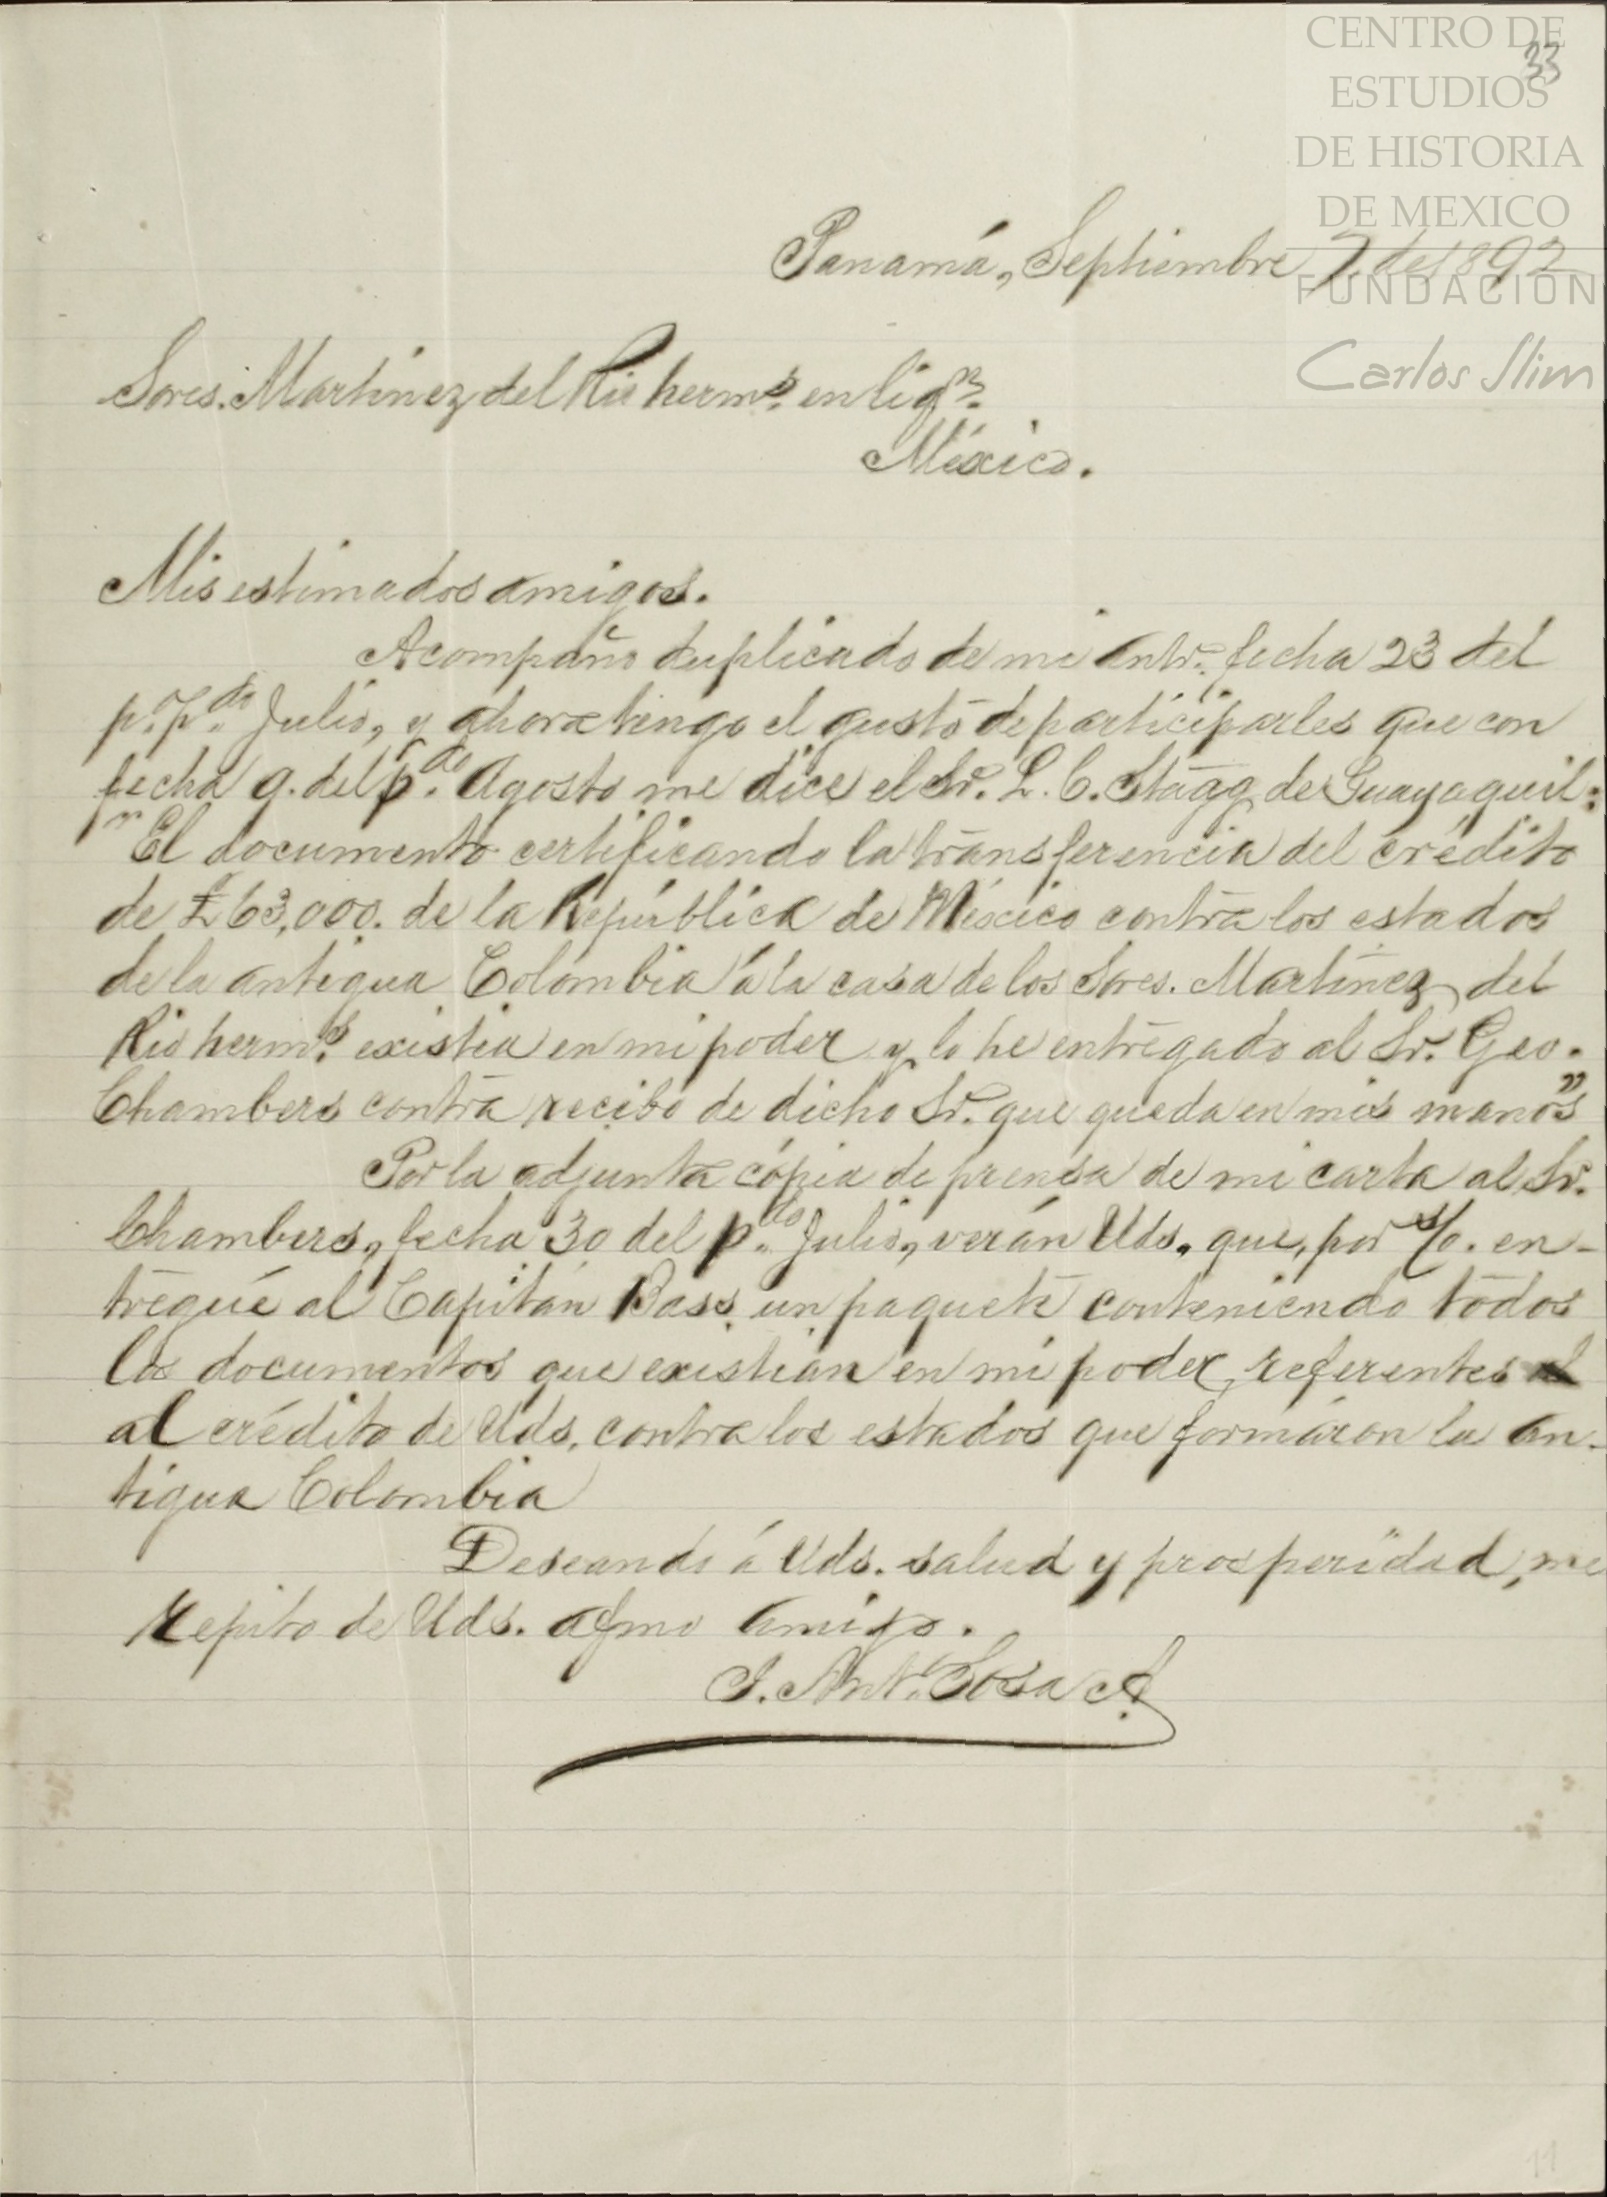 CENTRO DE
33
ESTUDIOS
DE HISTORIA
DE MEXICO
FUNDACION
Carlos Slim
Panamá, Septiembre 7 de 1892
Sores. Martínez del Rio hermos. en liqn.
México.
Mis estimados amigos.
Acompaño duplicado de mi antr. fecha 23 del
p. pdo. Julio, y ahora tengo el gusto de participarles que con
fecha 9. del pdo. Agosto me dice el Sr. L. C. Stagg de Guayaquil:
"El documento certificando la transferencia del crédito
de £63,000. de la República de México contra los estados
de la antigua Colombia á la casa de los Sores. Martínez del
Rio hermos. existia en mi poder y lo he entregado al Sr. Geo.
Chambers contra recibo de dicho Sr. que queda en mis manos"
Por la adjunta cópia de prensa de mi carta al Sr.
Chambers, fecha 30 del pdo. Julio, verán Uds. que, por s/o. en-
tregué al Capitán Bass un paquete conteniendo todos
los documentos que existian en mi poder referentes
al crédito de Uds. contra los estados que formáron la an-
tigua Colombia
Deseando á Uds. salud y prosperidad, me
repito de Uds. afmo amigo.
J. Anto. Sosa A.
11